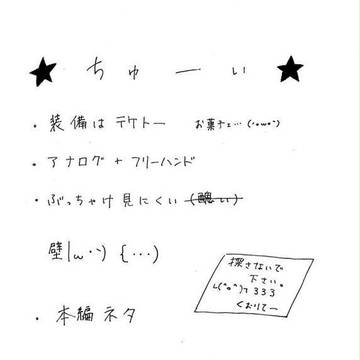 ★ ちゅーい ★
・装備はテケトー お菓子ェ…(・ω・`)
・アナログ+フリーハンド
・ぶっちゃけ見にくい(醜い)
壁|ω・`){…)
・本編ネタ
探さないで
下さい。
┗(^o^)┓333
くおりてー